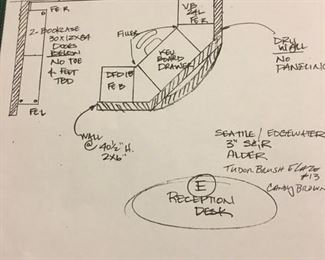 FE R
2-BOOKCASE
30x12x84
DOORS
BELOW
NO TOE
4-FEET
TBD
FE L
FILLER
VB
24L
FE R
KEY
BOARD
DRAWER
DFD18
FE B
DRY
WALL
NO
PANELING
WALL
@
40½" H.
2x6"
SEATTLE/EDGEWATER
3" S&R
ALDER
TUDOR BRUSH GLAZE
#13
CANDY BROWN
E
RECEPTION
DESK